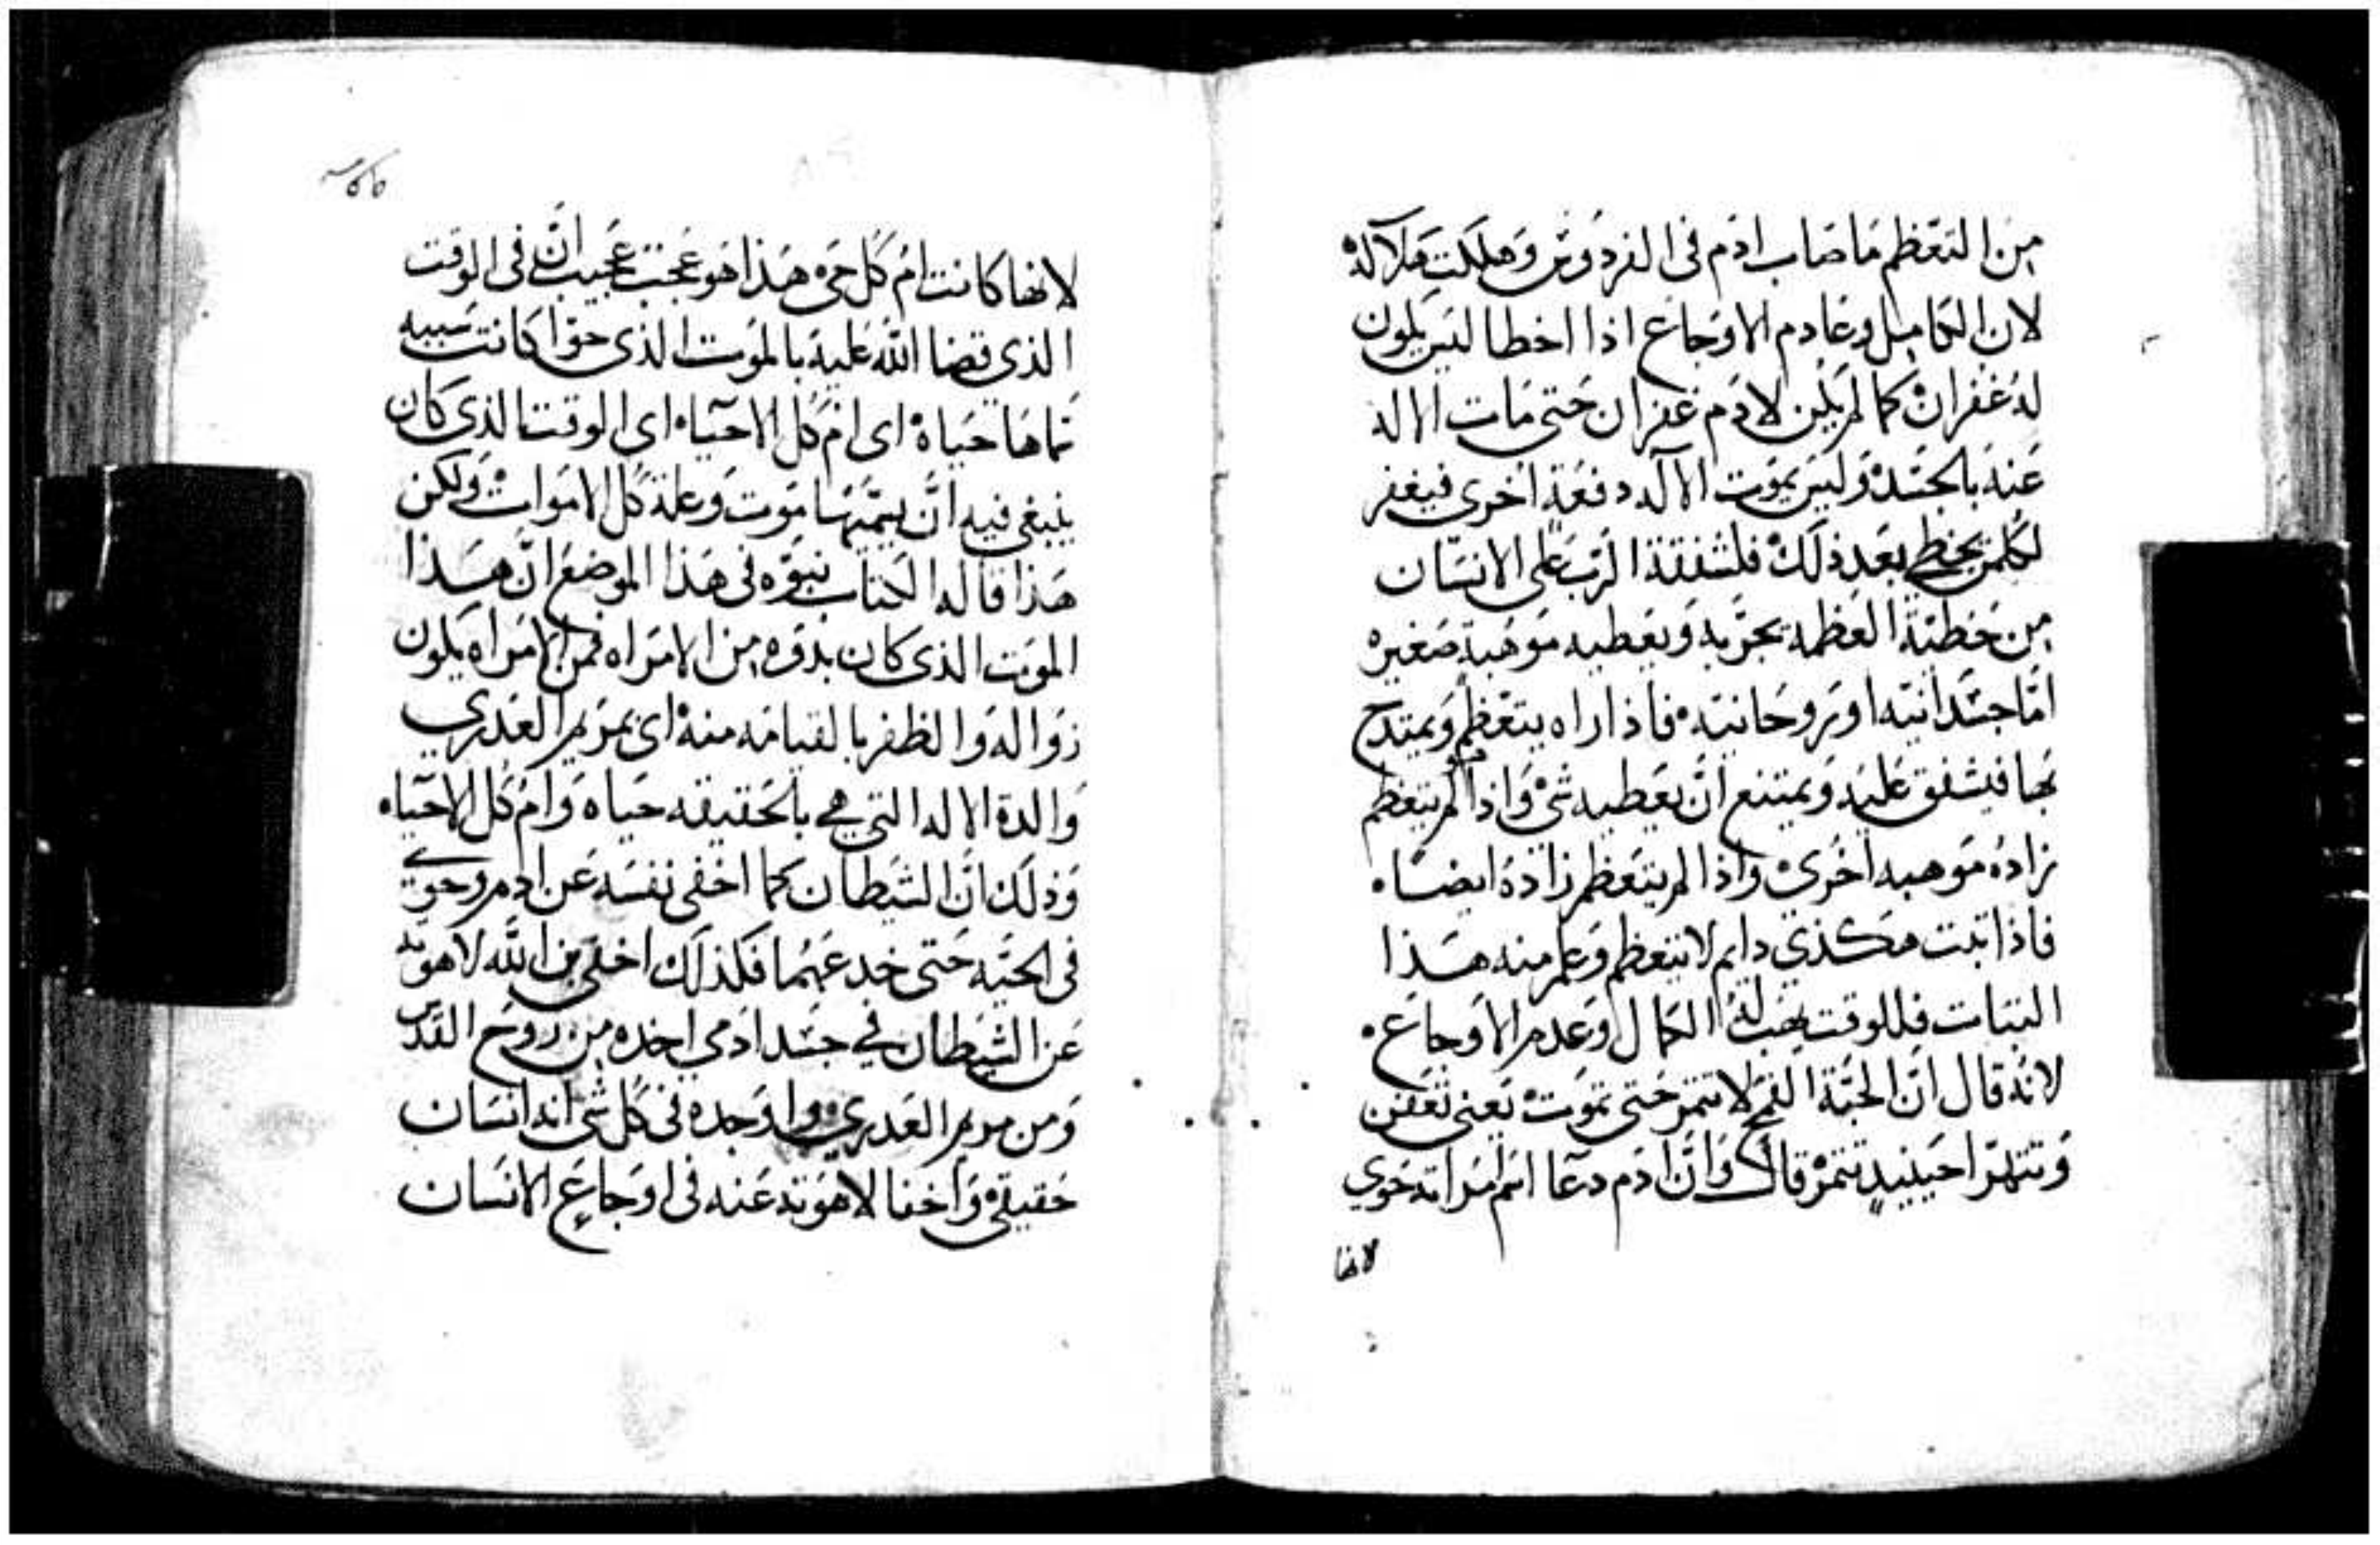 من التعظم ما صاب ادم فى الفردوس وهلكت ملاكه
لان الكامل وعادم الاوجاع اذا اخطا ليس يكون
له غفران كما لم يكن لادم غفران حتى مات الاله
عنه بالجسد وليس يموت الاله دفعة اخرى فيغفر
لكلمن يخطى بعد ذلك فلشفقة الرب على الانسان
من خطية العظمه يجربه ويعطيه موهبة صغيره
اما جسدانيه او روحانيه فاذا راه يتعظم ويمتدح
بها فيشفق عليه ويمتنع ان يعطيه شى واذا لم يتعظم
زاده موهبه اخرى واذا لم يتعظم زاده ايضا
فاذا تبت هكذي دايم لا يتعظم وعلم منه هذا
التبات فللوقت يهب له الكمال وعدم الاوجاع
لانه قال ان الحبة القمح لا تتمر حتى تموت يعنى تعفن
وتتهرا حينيد تتمر قال وان ادم دعا اسم امراته حوي
لانها
لانها كانت ام كل حى هذا هو عجب عجيب ان فى الوقت
الذي قضا الله عليه بالموت الذى حوا كانت سببه
سماها حياة اى ام كل الاحياء اى الوقت الذى كان
ينبغى فيه ان يسميها موت وعلة كل الاموات ولكن
هذا قاله الكتاب نبوه فى هذا الموضع ان هذا
الموت الذى كان بدوه من الامراه فمن الامراه يكون
زواله والظفر بالقيامه منه اى بمريم العدري
والدة الاله التي هي بالحقيقه حياه وام كل الاحياء
وذلك ان الشيطان كما اخفى نفسه عن ادم وحوي
فى الحيه حتى خدعهما فكذلك اخفى بن الله لاهوته
عن الشيطان في جسد ادمي اخده من روح القدس
ومن مريم العدري واوجده فى كل شى انه انسان
حقيقى واخفا لاهوته عنه فى اوجاع الانسان